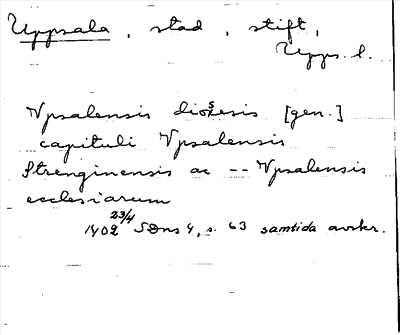 Uppsala, stad, stift,
Upps. l.
Vpsalensis diosesis [gen.]
capituli Vpsalensis
Strenginensis ac -- Vpsalensis
ecclesiarum
1402 23/4 SDns 1, s. 63 samtida avskr.